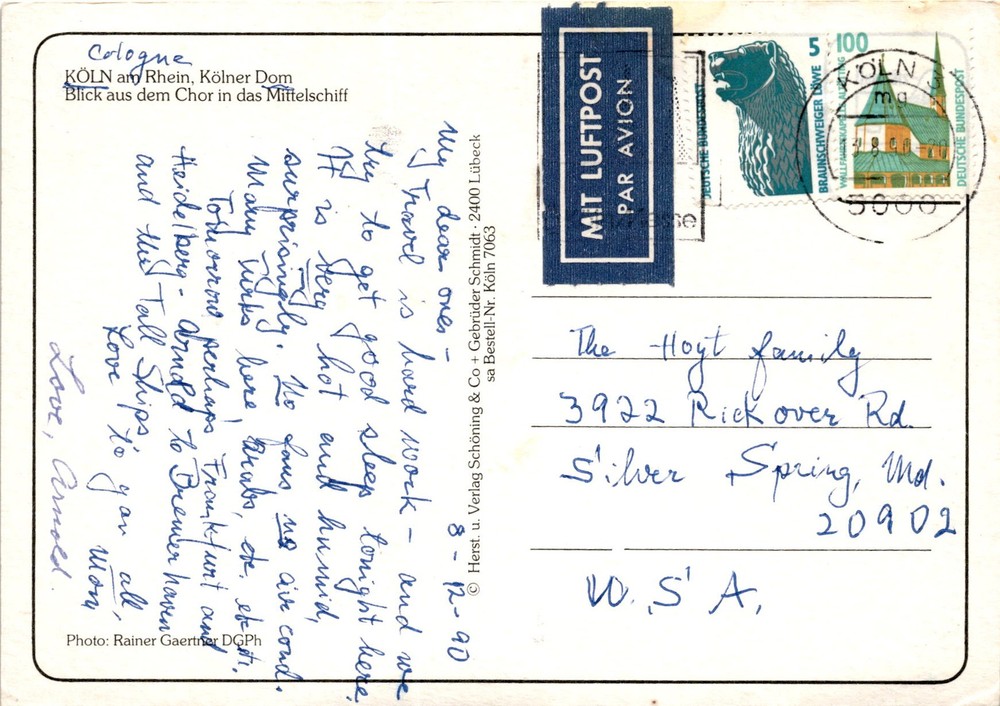 Cologne
KÖLN am Rhein, Kölner Dom
Blick aus dem Chor in das Mittelschiff
8-12-90
My dear ones -
Travel is hard work - and we
try to get good sleep tonight here.
It is very hot and humid,
surprisingly. No fans no air cond.
Many Turks here, Arabs, etc. etc. etc.
Tomorrow perhaps Frankfurt and
Heidelberg - Arnold to Bremerhaven
and the Tall Ships
Love to you all,
Mom
Love, Arnold.
Photo: Rainer Gaertner DGPh
© Herst. u. Verlag Schöning & Co + Gebrüder Schmidt · 2400 Lübeck
sa Bestell-Nr. Köln 7063
MIT LUFTPOST
PAR AVION
5
DEUTSCHE BUNDESPOST
BRAUNSCHWEIGER LÖWE
100
WALLFAHRTSKAPELLE ALTÖTTING
DEUTSCHE BUNDESPOST
KÖLN 3
mg
5000
The Hoyt family
3922 Rickover Rd.
Silver Spring, Md.
20902
U.S A.